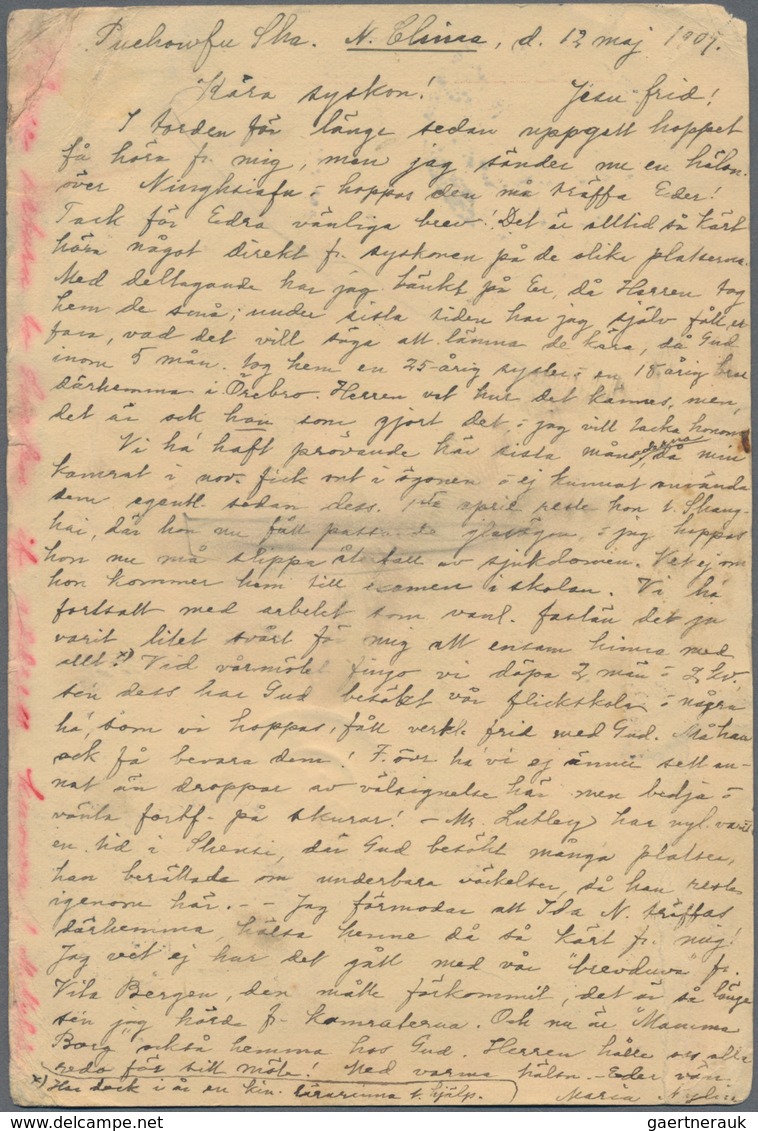 Puchowfu Sha. N. China, d. 12 maj 1909.
Kära syskon! Jesu frid!
I torden för länge sedan uppgett hoppet
få höra fr. mig, men jag sänder nu en hälsn.
över Ninghsiafu o hoppas den må träffa Eder!
Tack för Edra vänliga brev! Det är alltid så kärt
höra något direkt fr. syskonen på de olika platserna.
Med deltagande har jag tänkt på Er, då Herren tog
hem de små; under sista tiden har jag själv fått er
fara, vad det vill säga att lämna de kära, då Gud
inom 5 mån. tog hem en 25-årig syster o en 18 årig bror
därhemma i Örebro. Herren vet hur det kännes, men,
det är ock han som gjort det o jag vill tacka honom
Vi ha haft prövande här sista månaderna, då min
kamrat i nov. fick ont i ögonen o ej kunnat använda
dem egentl. sedan dess. april reste hon t. Shang-
hai, där hon nu fått passande glasögon, o jag hoppas
hon nu må slippa återfall av sjukdomen. Vet ej om
hon kommer hem till examen i skolan. Vi ha
fortsatt med arbetet som vanl. fastän det ju
varit litet svårt för mig att ensam hinna med
allt.x) Vid vårmötet fingo vi döpa 2 män o 2 kv.
sen dess har Gud besökt vår flickskola o några
ha, som vi hoppas, fått verkl. frid med Gud. Må han
ock få bevara dem! F. övr. ha vi ej ännu sett an-
nat än droppar av välsignelse här men bedja o
vänta fortf. på skurar! - Mr. Lutley har nyl. varit
en tid i Shensi, där Gud besökt många platser,
han berättade om underbara väckelser, då han reste
igenom här. - - Jag förmodar att Ida N. träffas
därhemma, hälsa henne då så kärt fr. mig!
Jag vet ej hur det gått med vår "brevduva" fr.
Vita Bergen, den måtte förkommit, det är så länge
sen jag hörde fr. kamraterna. Och nu är "Mamma
Borg" också hemma hos Gud. Herren hålle oss alla
redo för sitt möte! Med varma hälsn. - Eder vän
x) Har dock i år en kin. lärarinna t. hjälp. Maria Nylin